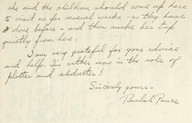 she and the children should come up here
to visit us for several weeks - as they have
done before - and then make her trip
quietly from here.
I am very grateful for your advice
and help. I'm rather new in the role of
plotter and abductor!
Sincerely yours -